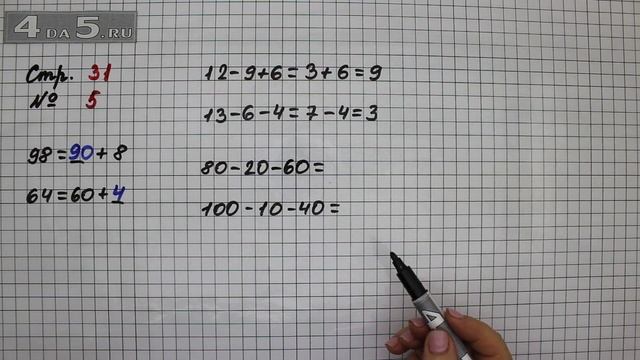 4 DA 5.RU
Стр. 31
№ 5
98 = 90 + 8
64 = 60 + 4
12 - 9 + 6 = 3 + 6 = 9
13 - 6 - 4 = 7 - 4 = 3
80 - 20 - 60 =
100 - 10 - 40 =